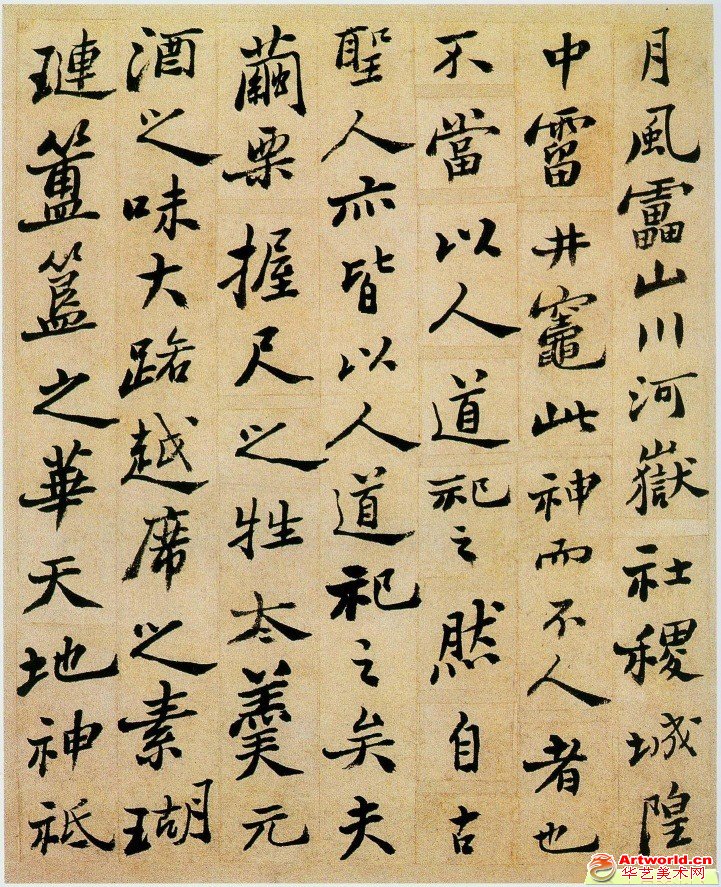 月風靁山川河嶽社稷城隍
中霤井竈此神而不人者也
不當以人道祀之然自古
聖人亦皆以人道祀之矣夫
繭栗握尺之牲太羹元
酒之味大路越席之素瑚
璉簠簋之華天地神祇
Artworld.cn
华艺美术网